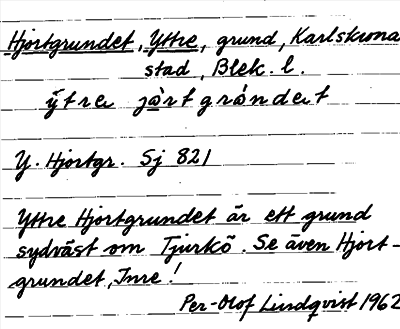 Hjortgrundet, Yttre, grund, Karlskrona
stad, Blek. l.
ýtre jòrtgrǻndet
Y. Hjortgr. Sj 821
Yttre Hjortgrundet är ett grund
sydväst om Tjurkö. Se även Hjort-
grundet, Inre!
Per-Olof Lindqvist 1962